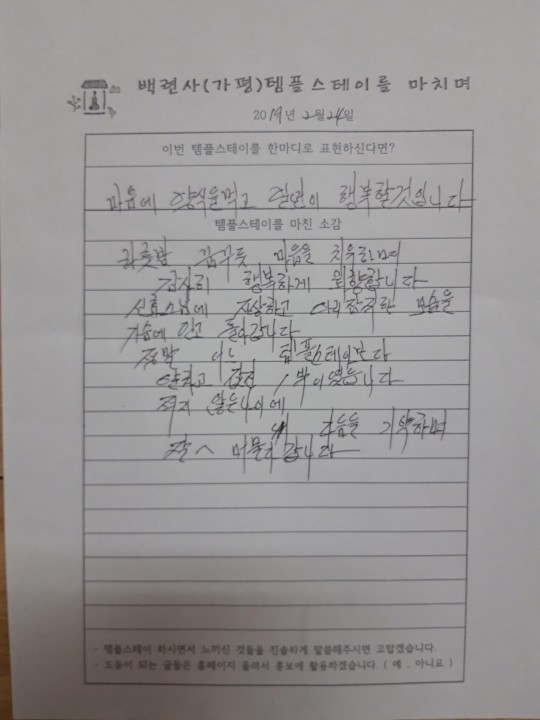 백련사(가평)템플스테이를 마치며
2019년 2월 24일
이번 템플스테이를 한마디로 표현하신다면?
마음에 양식을먹고 일년이 행복할것입니다
템플스테이를 마친 소감
하룻밤 꿈꾸듯 마음을 치유하며
감사히 행복하게 회향합니다
스님에 자상하고 모습을
가슴에 안고 돌아갑니다
정말 템플스테이보다
알차고 1박이였습니다
적지 않은나이에
다음을 기약하며
잘 머물다 갑니다
- 템플스테이 하시면서 느끼신 것들을 진솔하게 말씀해주시면 고맙겠습니다.
- 도움이 되는 글들은 홈페이지 올려서 홍보에 활용하겠습니다. ( 예 . 아니요 )